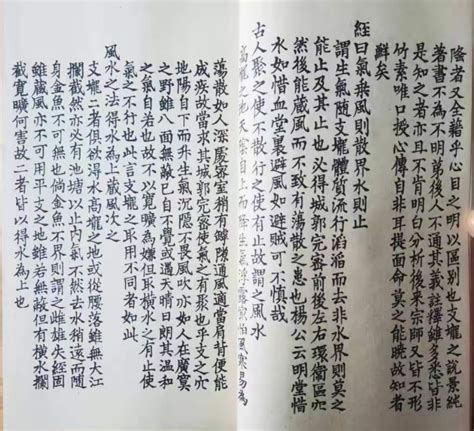 陰者又全籍乎心目之以區別也支壠之說景純
著書不為不明苐後人不通其義註釋雖多悉皆非
是知之者亦且不肯明白分析後來宗師又皆不形
竹素唯口授心傳非耳提面命莫之能曉故知者
鮮矣
經曰氣乘風則散界水則止
謂生氣隨支壠體質流行滔滔而去非水界則莫之
能止及其止也必得城郭完密前後左右環衛區穴
然後能藏風而不致有蕩散之患也楊公云明堂惜
水如惜血堂裏避風如避賊可不慎哉
古人聚之使不散行之使有止故謂之風水
高壠之地天陰自上而降生氣浮露最怕風寒易為
蕩散如人深處密室稍有罅隙通風適當肩背便能
成疾故當求其城郭完密使氣之有聚也平支之穴
地陽自下而升生氣沉隱不畏風吹亦如人在廣寞
之野雖八面無蔽已自不覺或遇天晴日朗其溫和
之氣自若也故不以寬曠為嫌但取橫水之有止使
氣之不行也此言支壠之取用不同者如此
風水之法得水為上藏風次之
支壠二者俱欲得水高壠之地或從腰落雖無大江
攔截然亦必有池塘以止內氣不然去水稍遠而隨
身金魚不可無也倘金魚不界則謂之雌雄失經固
雖藏風亦不可用平支之地雖若無蔽但有橫水攔
截寬曠何害故二者皆以得水為上也